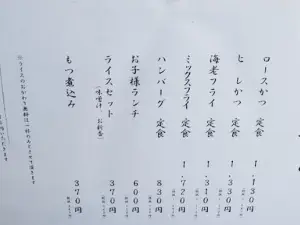 ロースかつ 定食 1.130円
ヒレかつ 定食 1.330円
海老フライ 定食 1.310円
ミックスフライ 定食 1.720円
ハンバーグ 定食 830円
お子様ランチ 600円
ライスセット 370円
(味噌汁 お新香)
もつ煮込み 370円
※ライスのおかわり無料は一杯のみとさせて頂きます